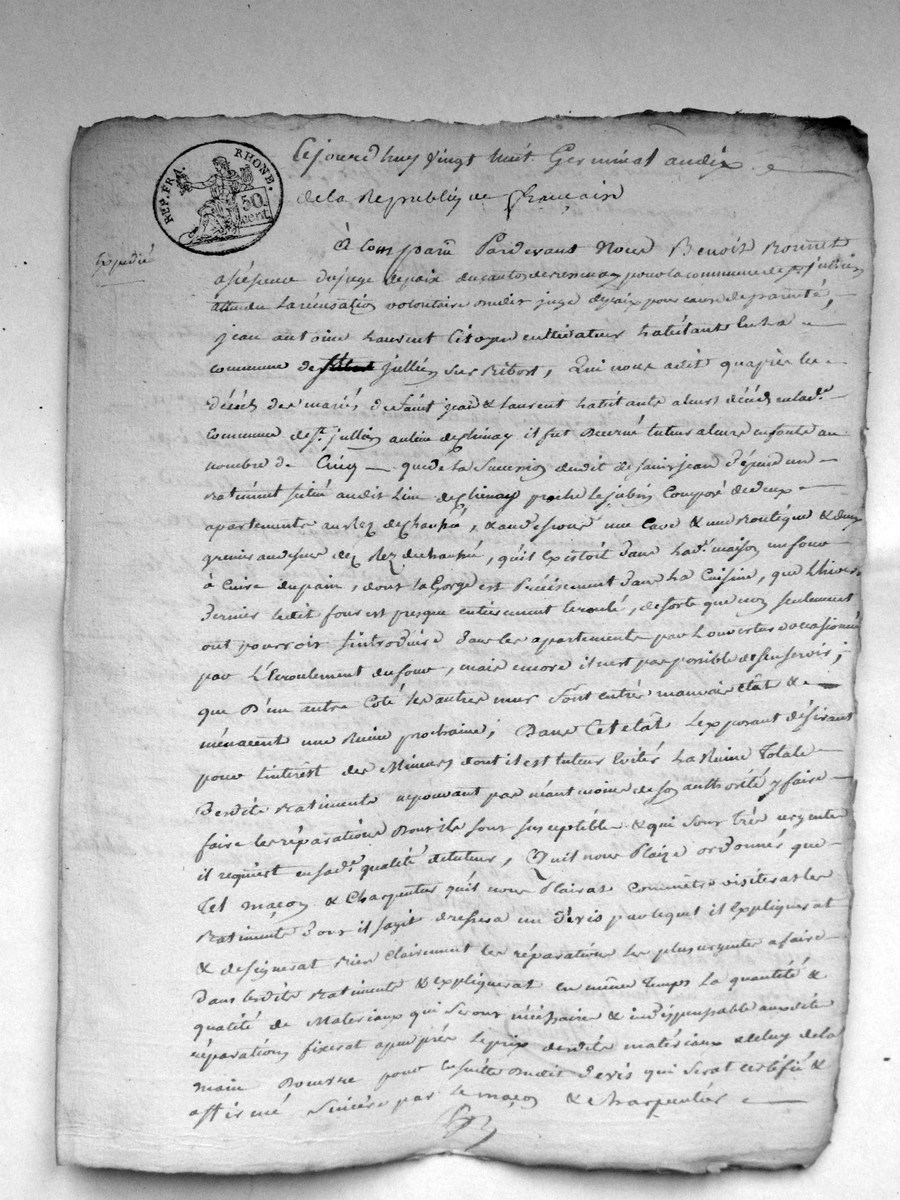 REP. FRA. RHONE.
50 cent.
Cejourd huy vingt huit Germinal an dix
de la Republique française
Expedié
à Comparu Pardevant Nous Benoit Bonnet
assesseur du juge de paix du canton de pour la commune de St jullien
attendu la récusation volontaire dudit juge de paix pour cause de parenté,
jean antoine Laurent Citoyen cultivateur habitant en la
commune de jullien sur Bibost, Qui nous a dit quaprès le
décéds des mariés de Saint jean & Laurent habitants alors décédés en lade.
commune de St. jullien au lieu de Chinay il fut nommé tuteur a leurs enfants au
nombre de Cinq — que de la Succession dudit de Saint jean dépend un
batiment situé audit Lieu de Chinay proche Composé de deux
apartements au Rez de Chaussé, & au dessous une Cave & une Boutique & deux
greniers au dessus du Rez de Chaussé, quil existoit dans lade. maison un four
à Cuire du pain, dont la Gorge est Précisement dans la Cuisine, que Lhiver
dernier ledit four est presque entièrement écroulé, de sorte que non seulement
ont pourroit sintroduire dans les appartements par Louverture occasionné
par L'écroulement du four, mais encore il n'est pas possible de sen servir;
que D'un autre Coté les autres murs sont en très mauvais état &
ménacent une Ruine prochaine; Dans Cet etât Lexposant désirant
pour lintérest des Mineurs dont il est tuteur Eviter La Ruine Totale
Desdits batiments ne pouvant pas néantmoins de son authorité y faire
faire les réparations dont ils sont susceptible & qui sont très urgente
il requiert en sade. qualité de tuteur, Quil nous Plaize ordonné que
tel maçon & Charpentier quil nous Plairat Commétre visiteras les
Batiments dont il sagit dressera un Dévis par lequel il Expliquerat
& designerat bien clairement les réparations les plus urgentes a faire
Dans lesdits batiments & expliquerat en même Temps La quantité &
qualité de Materiaux qui seront nécéssaire & indispensable auxdites
réparations fixerat a peu près le prix desdits matériaux & celuy de la
main D'euvre pour ensuite dudit Devis qui serat certifié &
affirmé Sincère par le maçon & Charpentier